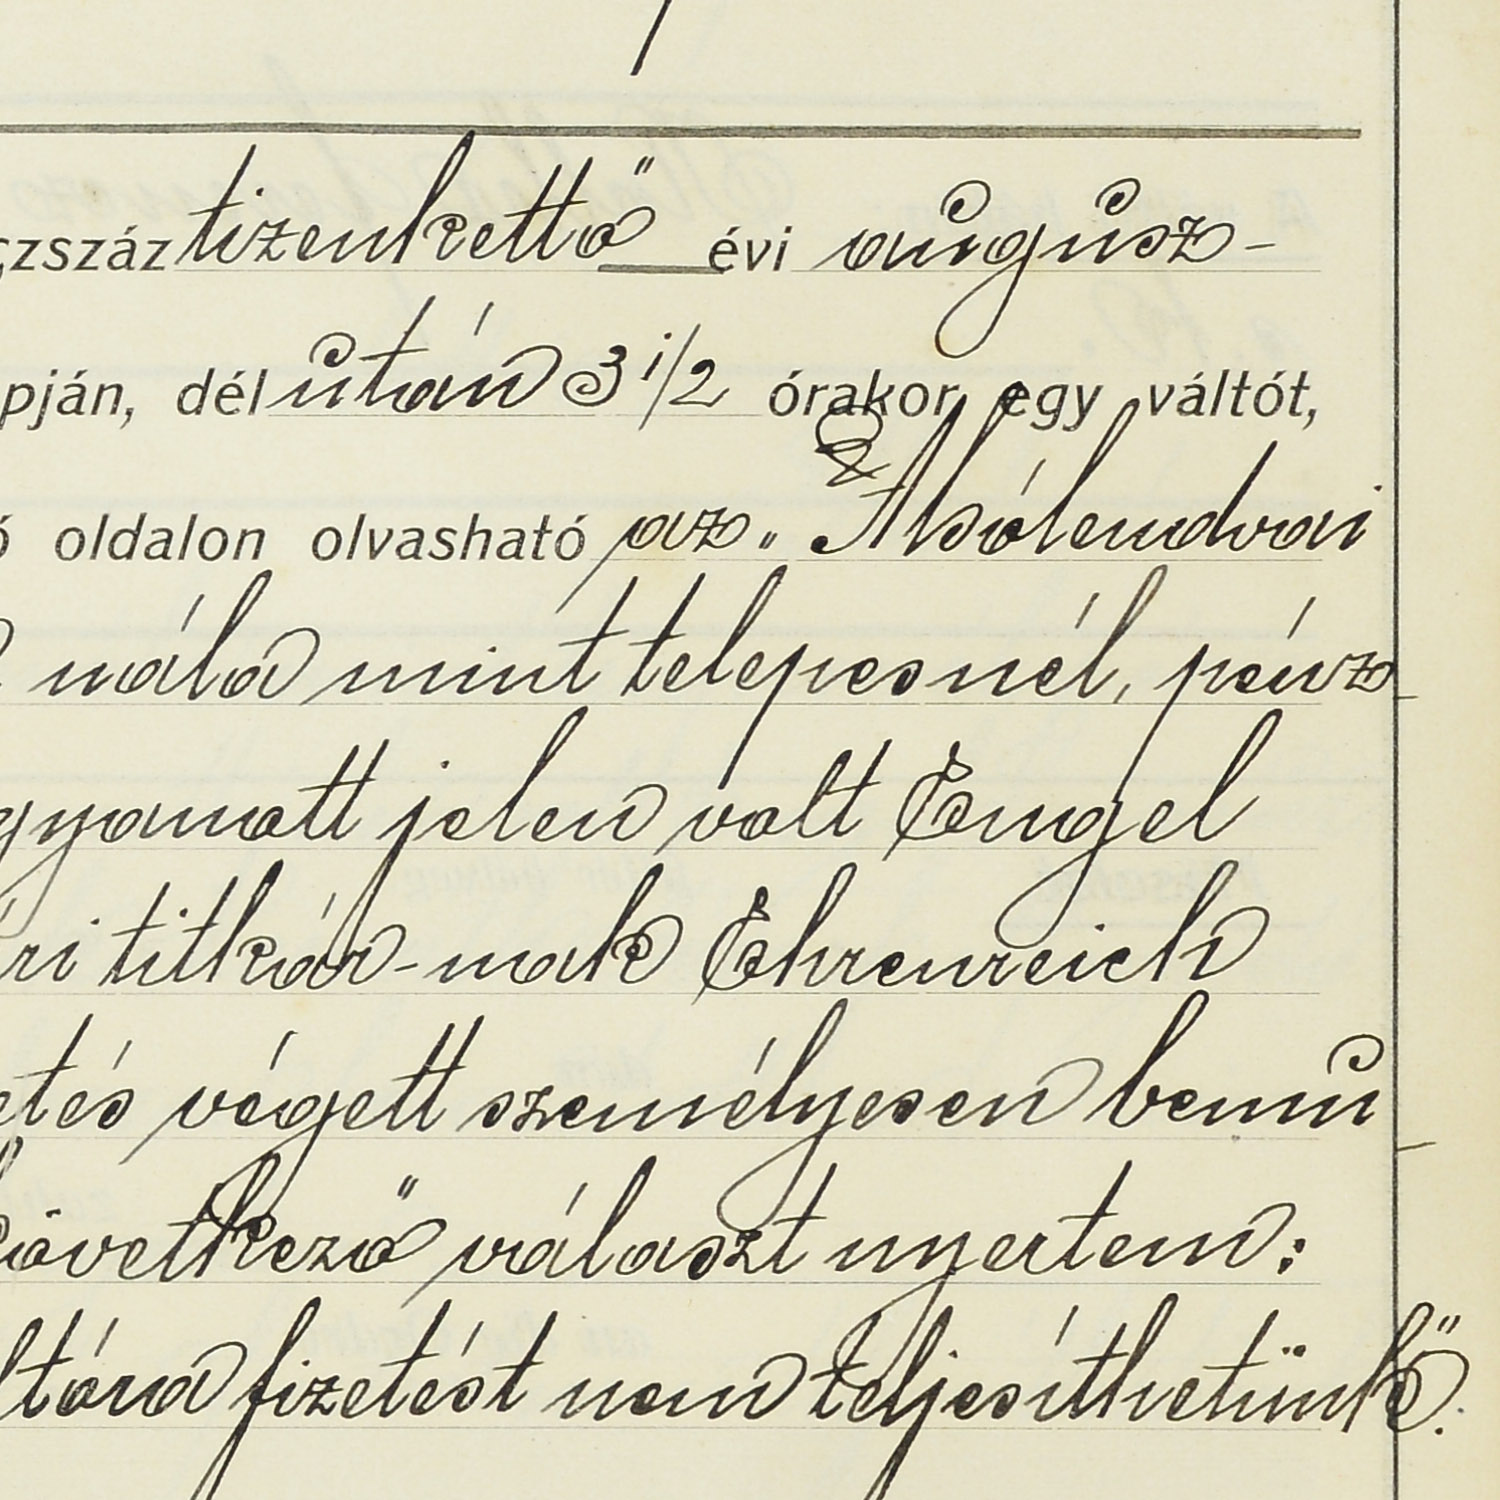 szszáz tizenkettő évi augusz-
pján, délután 3 1/2 órakor egy váltót,
ó oldalon olvasható az „Alsólendvai
nála mint telepesnél, pénz
gyanott jelen volt Engel
ri titkár-nak Ehrenreich
etés végett személyesen bemu
következő választ nyertem:
ltóra fizetést nem teljesíthetünk".